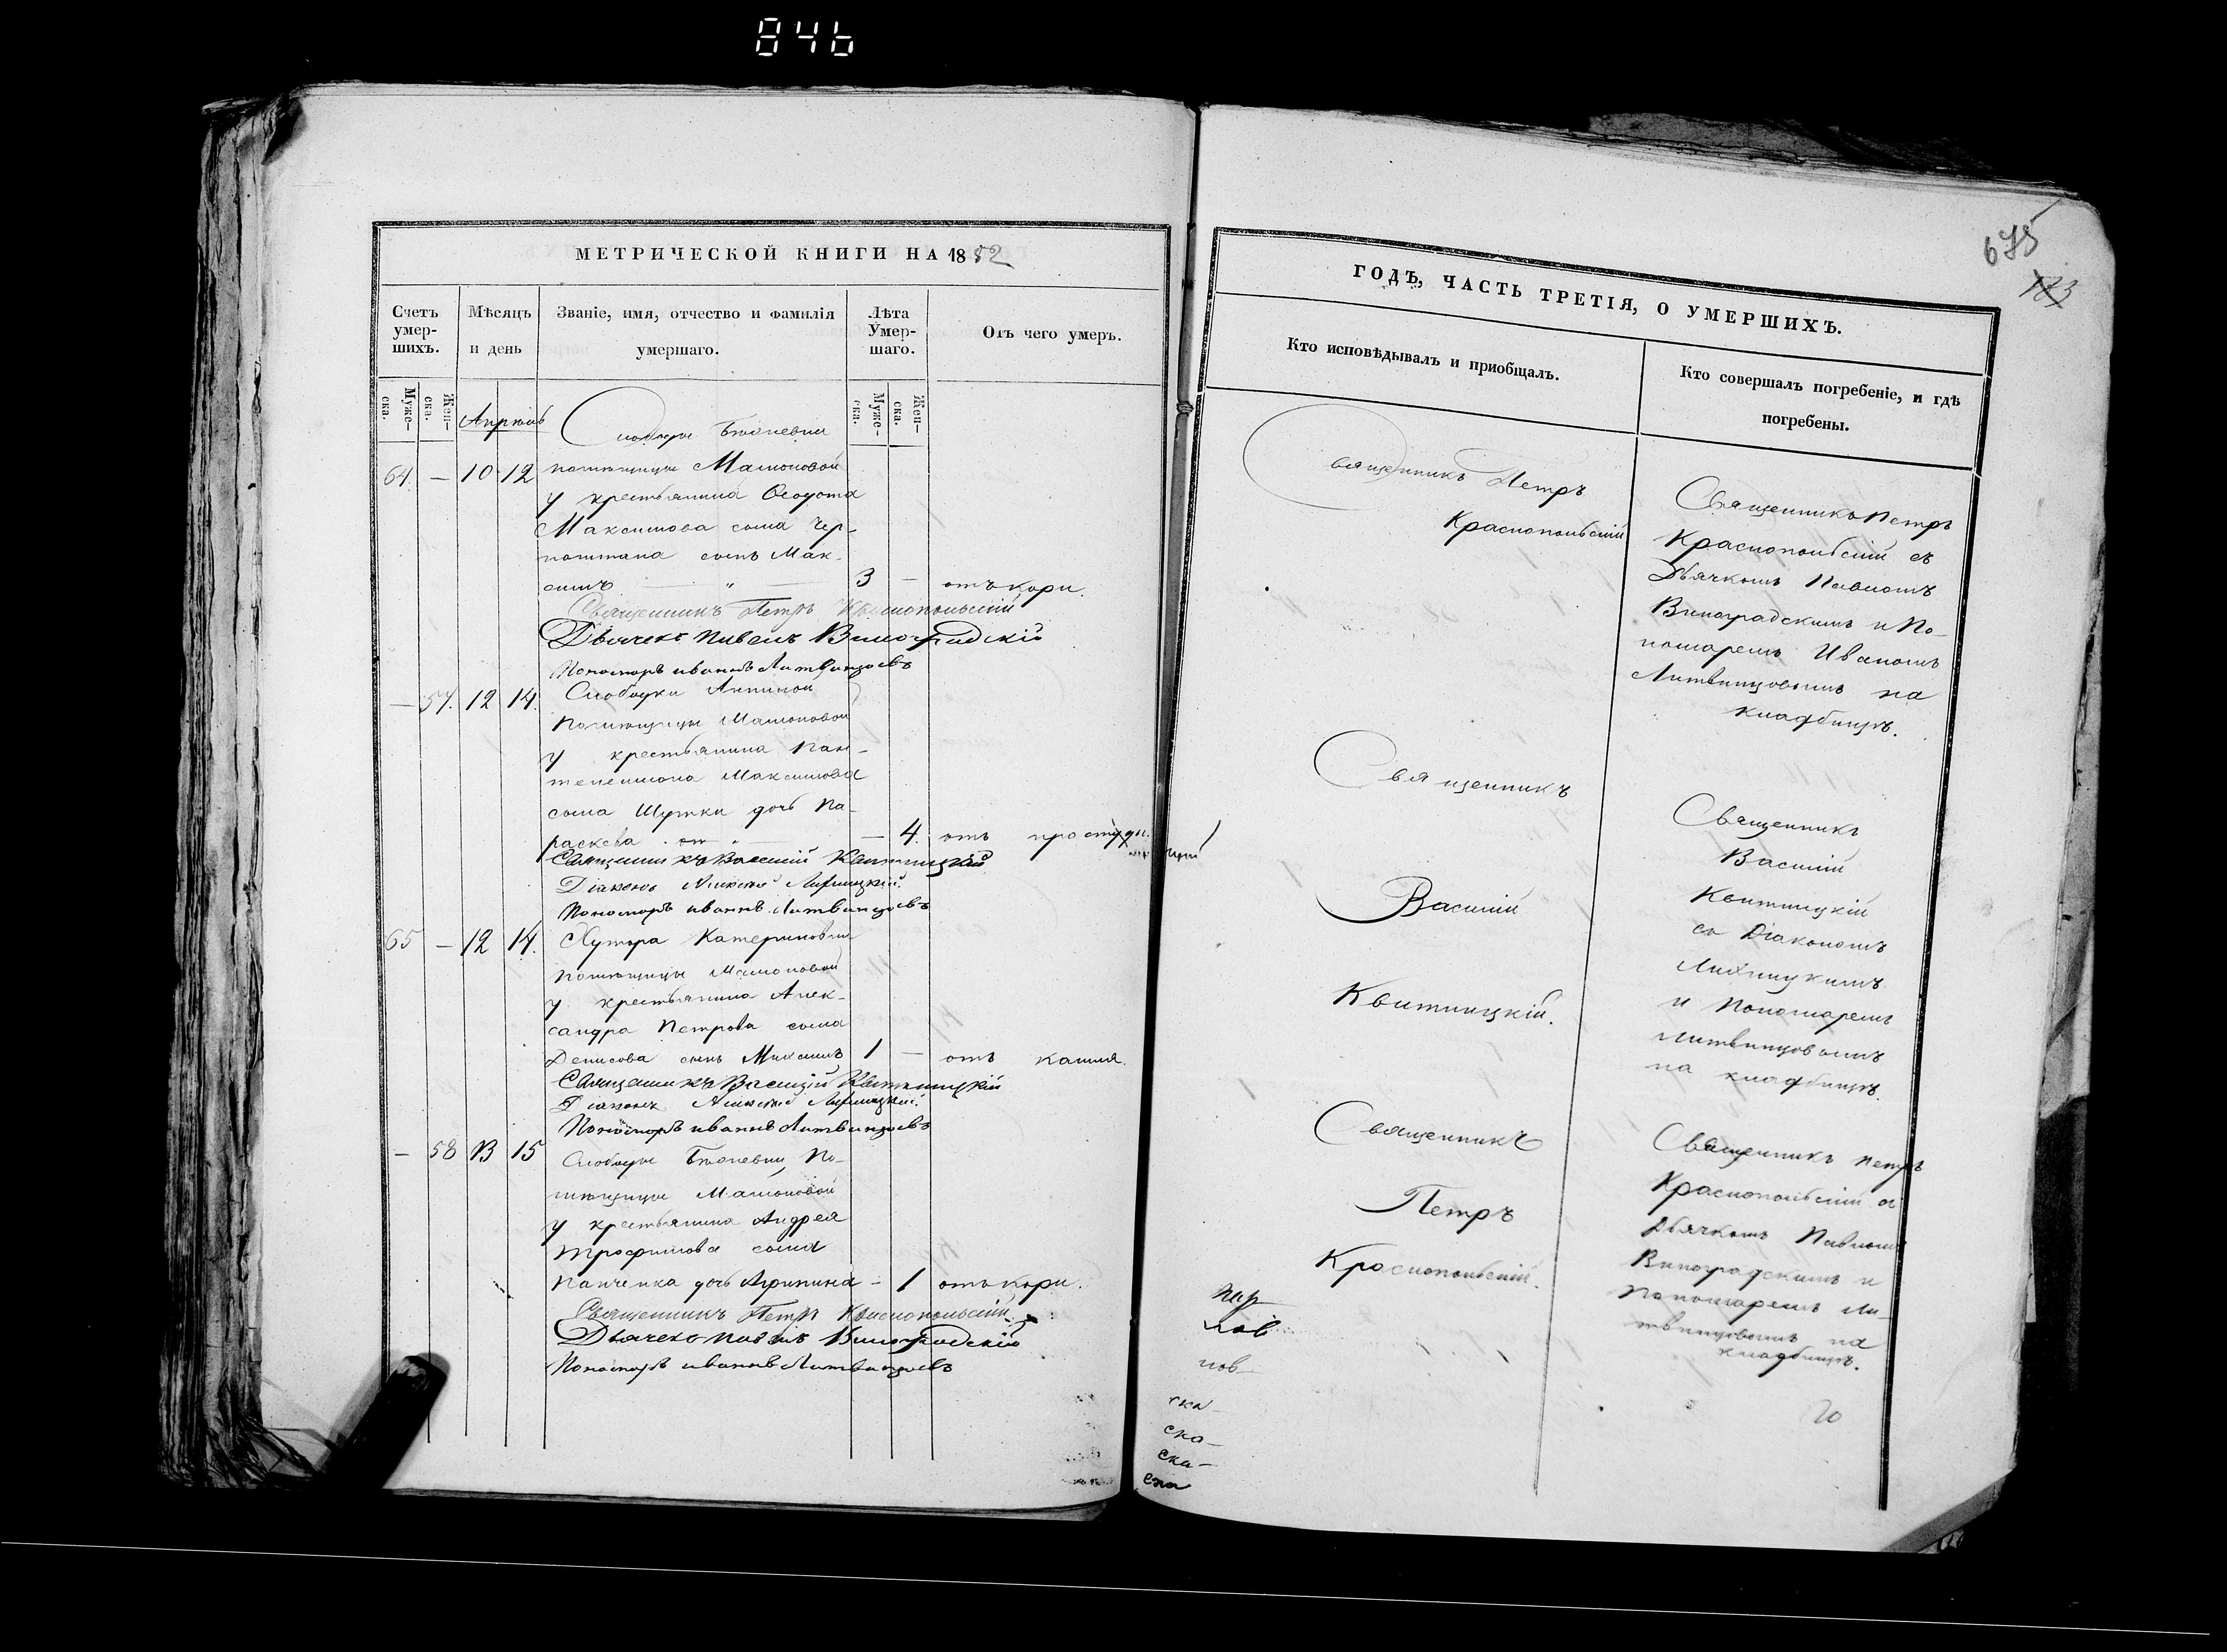 846
МЕТРИЧЕСКОЙ КНИГИ НА 1852
Счетъ умер-шихъ.
Мѣсяцъ и день
Званіе, имя, отчество и фамилія умершаго.
Лѣта Умер-шаго.
Отъ чего умеръ.
Муже-ска.
Жен-ска.
Муже-ска.
Жен-ска.
Апрѣль
Слободы
64. — 10 12 помѣщицы Мамоновой
у крестьянина Ѳеодота
Максимова сына Чер-
сынъ Мак-
симъ — " — 3 — отъ кори.
Священникъ Петръ Краснопольскій
Дьячекъ Павелъ Виноградскій
Пономарь Иванъ Литвинцовъ
— 57. 12 14. Слободки Анниной
помѣщицы Мамоновой
у крестьянина Пан-
телеимона Максимова
сына Шутки дочь Па-
раскева — 4. отъ простуды.
Священникъ Василій Квитницкій
Діаконъ Алексѣй
Пономарь Иванъ Литвинцовъ
65 — 12 14. Хутора Катериновки
помѣщицы Мамоновой
у крестьянина Алек-
сандра Петрова сына
Денисова сынъ 1 — отъ кашля.
Священникъ Василій Квитницкій
Діаконъ Алексѣй
Пономарь Иванъ Литвинцовъ
— 58 13 15 Слободы По-
мѣщицы Мамоновой
у крестьянина Андрея
Трофимова сына
Панченка дочь Агрипина — 1 отъ кори.
Священникъ Петръ Краснопольскій
Дьячекъ Павелъ Виноградскій
Пономарь Иванъ Литвинцовъ
675
183
ГОДЪ, ЧАСТЬ ТРЕТІЯ, О УМЕРШИХЪ.
Кто исповѣдывалъ и приобщалъ.
Кто совершалъ погребеніе, и гдѣ погребены.
Священникъ Петръ
Краснопольскій
Священникъ Петръ
Краснопольскій съ
Дьячкомъ Павломъ
Виноградскимъ и По-
номаремъ Иваномъ
Литвинцовымъ на
кладбищѣ.
Священникъ
Василій
Квитницкій.
Священникъ
Василій
Квитницкій
со Діакономъ
и Пономаремъ
Литвинцовымъ
на кладбищѣ.
Священникъ
Петръ
Краснопольскій.
Священникъ Петръ
Краснопольскій съ
Дьячкомъ Павломъ
Виноградскимъ и
Пономаремъ Ли-
твинцовымъ на
кладбищѣ.